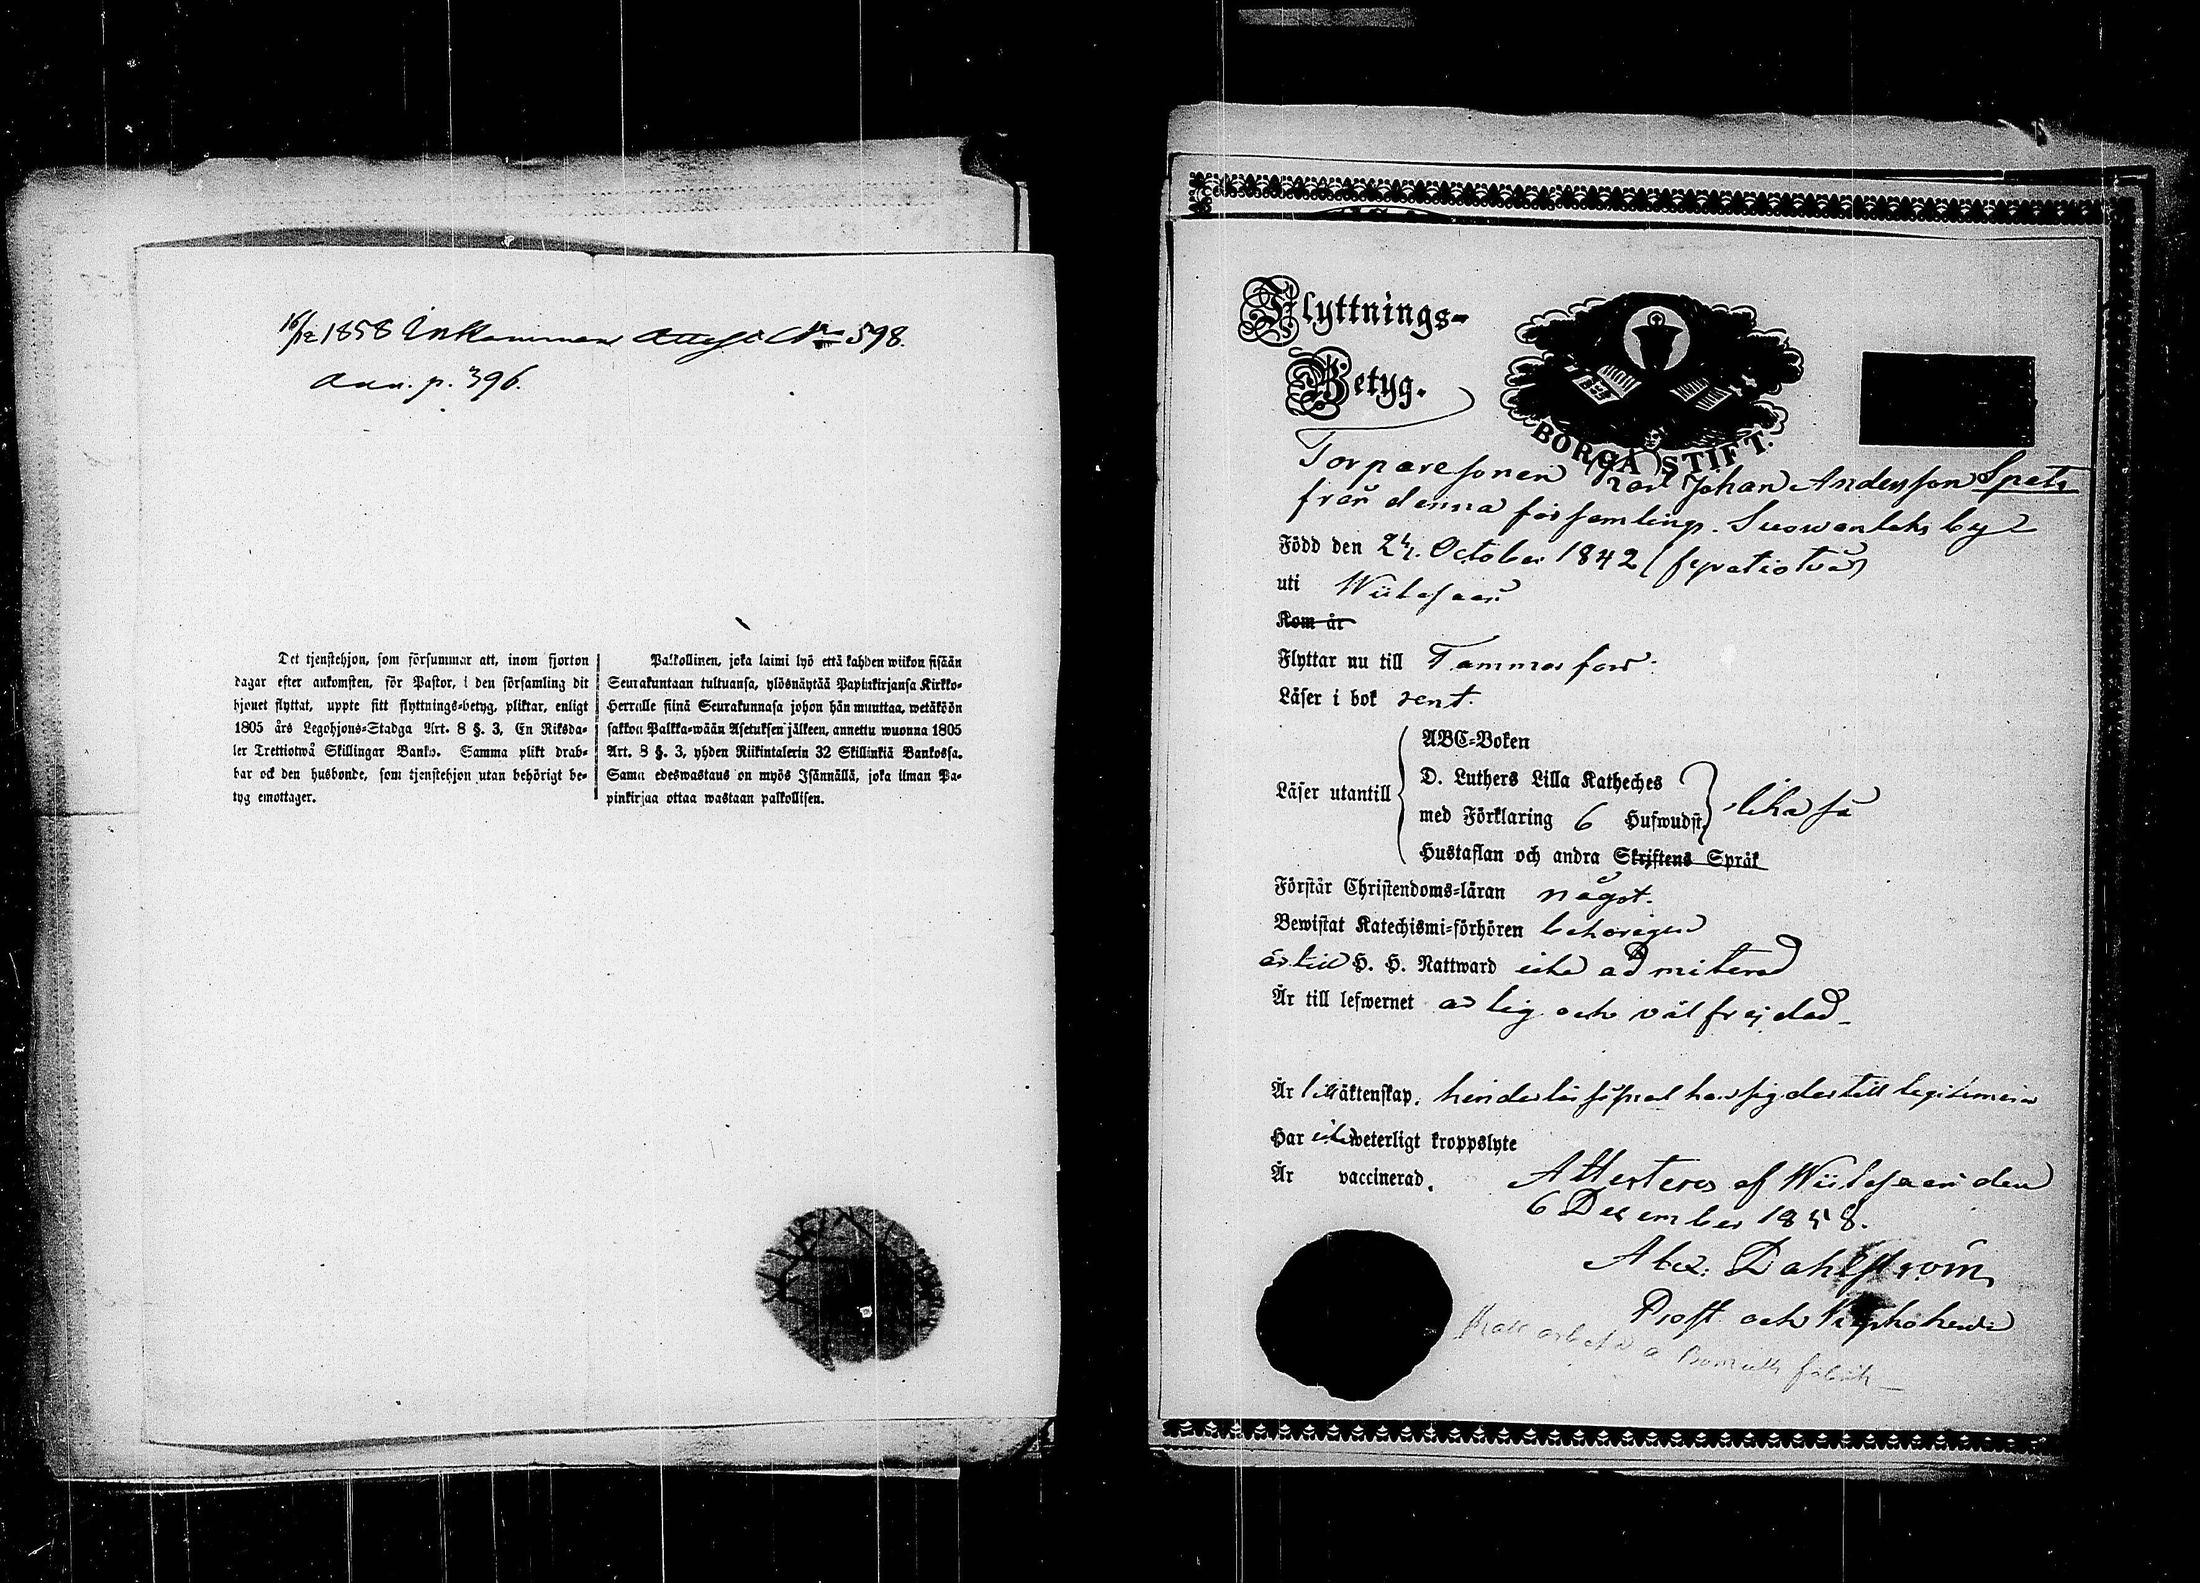 16/12 1858 Inkommen Attest No 598.
Ann. p. 396.
Det tjenstehjon, som försummar att, inom fjorton
dagar efter ankomsten, för Pastor, i den församling dit
hjonet flyttat, uppte sitt flyttnings-betyg, pliktar, enligt
1805 års Legohjons-Stadga Art. 8 §. 3, En Riksda-
ler Trettiotwå Skillingar Banko. Samma plikt drab-
bar ock den husbonde, som tjenstehjon utan behörigt be-
tyg emottager.
Palkollinen, joka laimi lyö että kahden wiikon sisään
Seurakuntaan tultuansa, ylösnäytää Papinkirjansa Kirkko-
Herralle siinä Seurakunnasa johon hän muuttaa, wetäköön
sakkoa Palkka-wään Asetuksen jälkeen, annettu wuonna 1805
Art. 8 §. 3, yhden Riikintalerin 32 Skillinkiä Bankossa.
Sama edeswastaus on myös Isännällä, joka ilman Pa-
pinkirjaa ottaa wastaan palkollisen.
Flyttnings-
Betyg.
BORGÅ STIFT.
Torparesonen Karl Johan Andersson Spets
från denna församlings Suowanlaks by
Född den 24. October 1842 (fyratiotvå)
uti Wiitasaari
Kom år
Flyttar nu till Tammerfors.
Läser i bok rent.
ABC-Boken
D. Luthers Lilla Katheches
Läser utantill med Förklaring 6 Hufwudst. lika så
Hustaflan och andra Skriftens Språk
Förstår Christendoms-läran något.
Bewistat Katechismi-förhören behörigen
är till H. H. Nattward icke admitterad
Är till lefwernet ärlig och välfrejdad
Är till äktenskap, hinderlös såframt han sig dertill legitimerar
Har icke weterligt kroppslyte
Är vaccinerad. Attesteras af Wiitasaari den
6 December 1858.
Alex: Dahlström,
Prost och Kyrkoherde
arbeta Bomulls fabrik